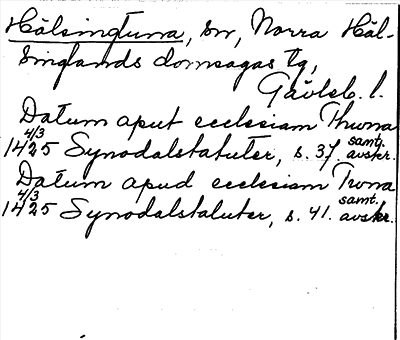 Hälsingtuna, sn, Norra Häl-
singlands domsagas tg,
Gävleb. l.
Datum aput ecclesiam Thuna
1425 4/3 Synodalstatuter, s. 37. samt. avskr.
Datum apud ecclesiam Trona
1425 4/3 Synodalstatuter, s. 41. samt. avskr.